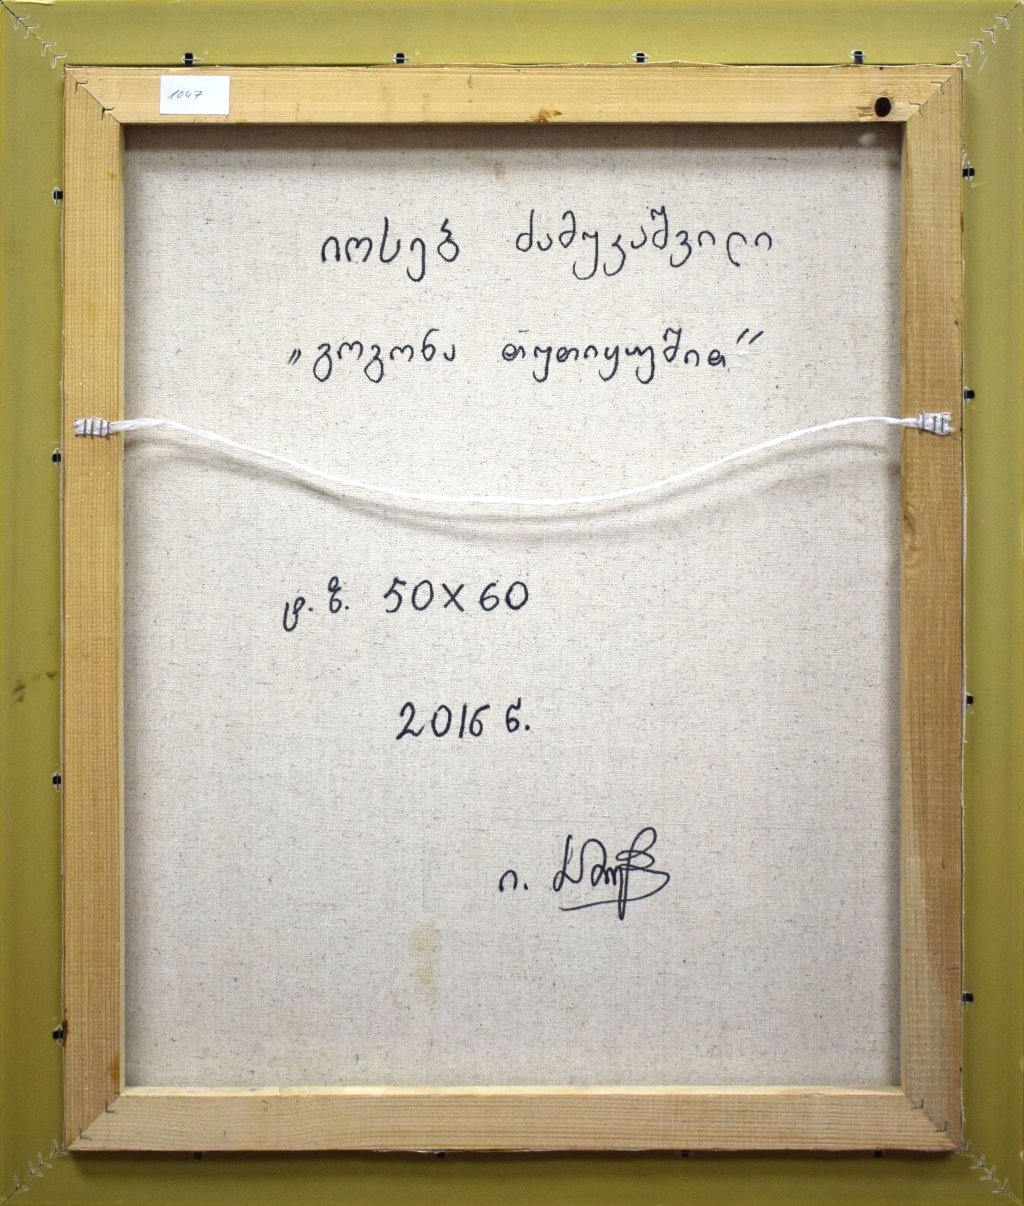 1047
იოსებ ძამუკაშვილი
„გოგონა თუთიყუშით“
ტ. ზ. 50X60
2016 წ.
ი.